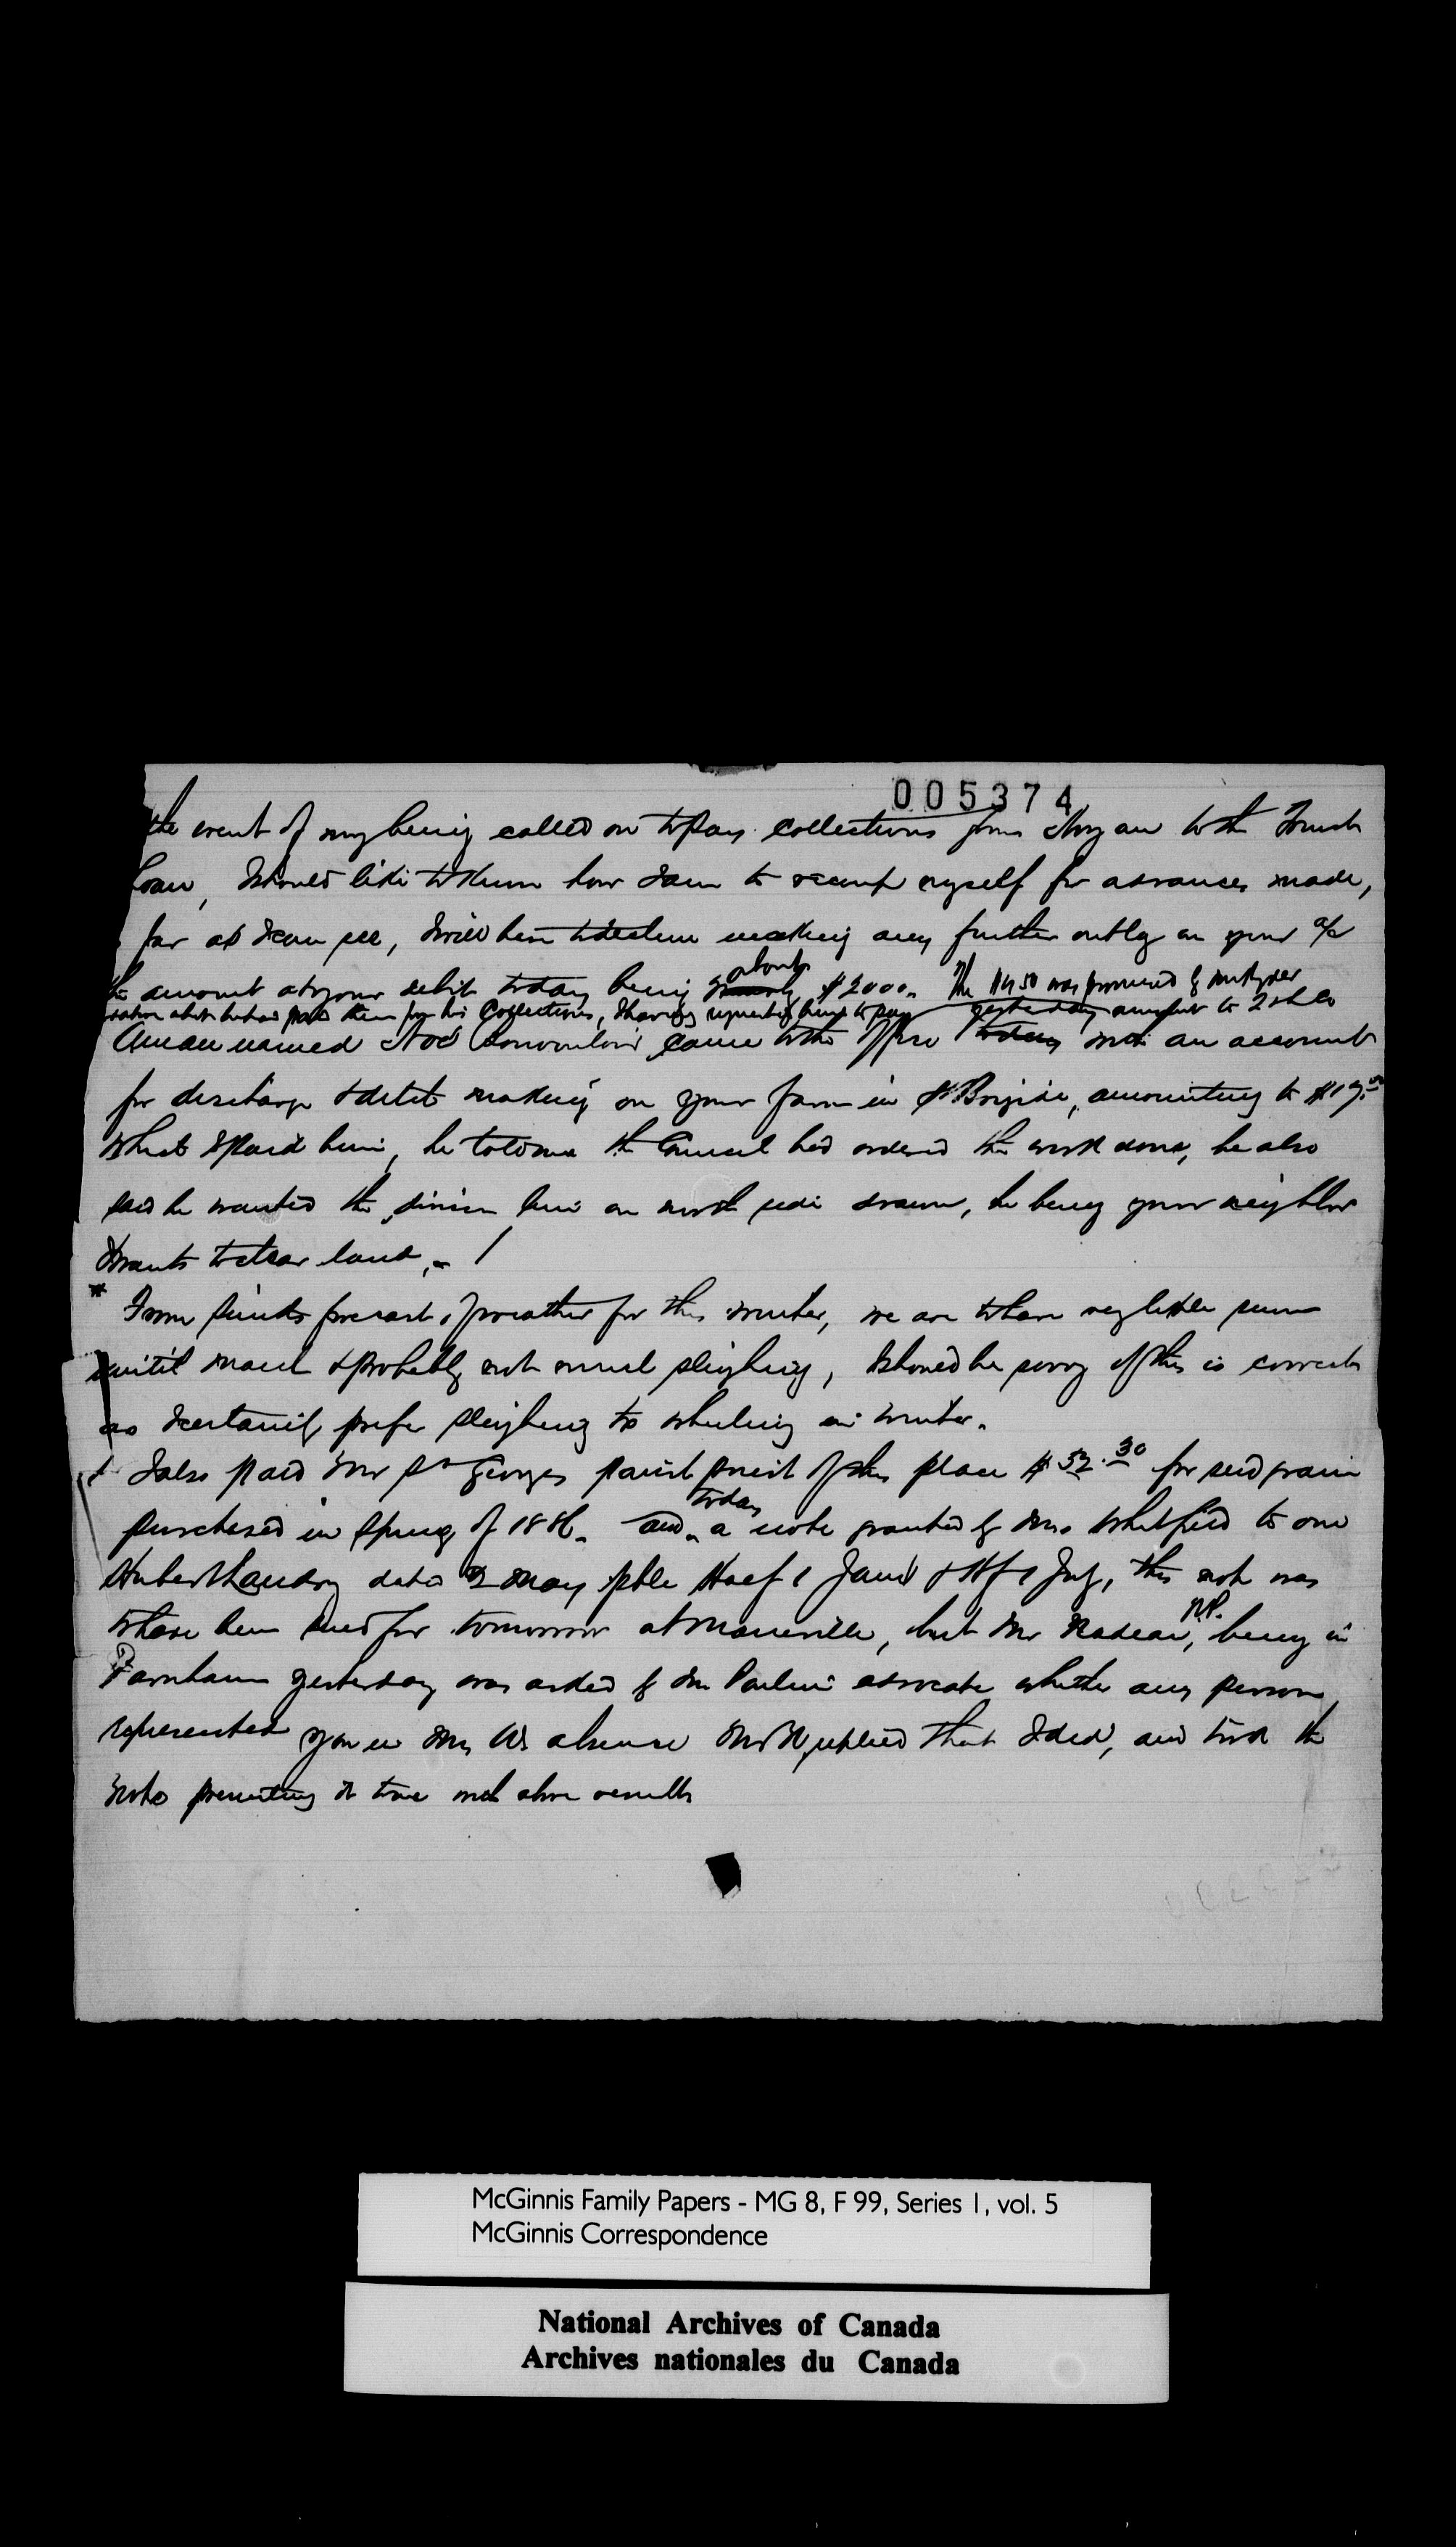 005374
the event of my being called on to pay collections from Morgan to the Trust
Loan, I should like to know how I am to recoup myself for advances made,
far as I can see, I will have to decline making any further outlay on your a/c
the amount at your debit today being about $2000. The $450 was promised by
them for his Collections, I having requested him to pay yesterday
A man named came to the Office today with an account
for discharge & ditch making on your farm in St Brigide, amounting to $19.
which I paid him, he told me the Council had ordered the work done, he also
said he wanted the division line on north side drawn, he being your neighbor
& wants to clear land, - /
From forecast of weather for this winter, we are to have very little snow
until March & probably not much sleighing, I should be sorry if this is correct
as I certainly prefer sleighing to wheeling in winter.
I also paid Mr St Georges parish priest of this place $32.30 for seed grain
purchased in Spring of 1886. and today a note granted by Mr. Whitfield to one
Hubert Landry dated 2 May pble Half 1 Jany & Hf 1 July, this note was
to have been sued for tomorrow at Marieville, but Mr Nadeau, N.P. being in
Farnham yesterday was asked by Mr advocate whether any person
represented you in Mr Ws absence Mr N replied that I did, and took the
note presenting it to me with above results
McGinnis Family Papers - MG 8, F 99, Series 1, vol. 5
McGinnis Correspondence
National Archives of Canada
Archives nationales du Canada